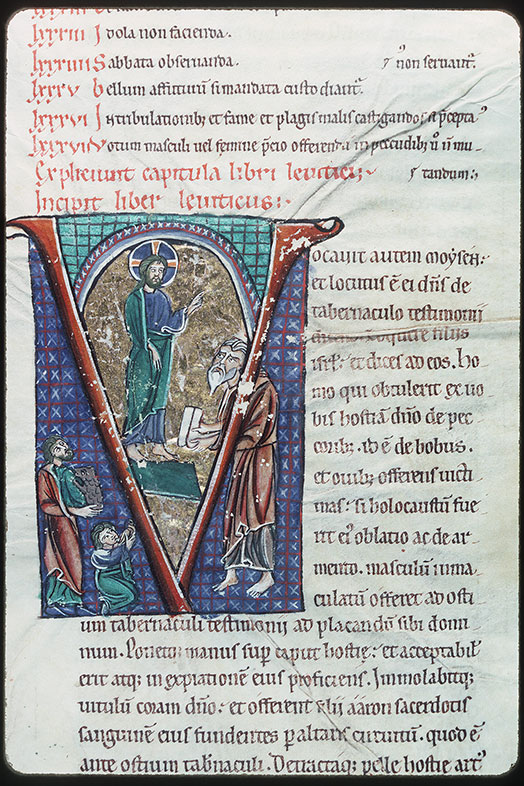 lxxxiii Idola non facienda.
lxxxiiii Sabbata observanda.
lxxxv bellum affuturū si mandata custodiant̄. ⁊ nō seruant̄.
lxxxvi In tribulationib; et fame et plagis malis castigandos si p̄cepta
lxxxvii Votum masculi uel femine p̄cio offerenda in pecudib; ū īmu-
Expliciunt capitula libri leuitici; ⁊ tandum;
Incipit liber leuiticus;
Vocauit autem moẏsen;
et locutus ē ei dn̄s de
tabernaculo testimonii
loquere filiis
isrl̄. et dices ad eos. ho
mo qui obtulerit ex uo
bis hostiā dn̄o de pec
corib; id ē de bobus.
et ouib; offerens uicti
mas; si holocaustū fue
rit ei' oblatio ac de ar
mento. masculū inma
culatū offeret ad osti
um tabernaculi testimonii ad placandū sibi domi
num. Ponetq; manus sup̄ caput hostię; et acceptabil'
erit atq; in expiationē eius proficiens. Immolabitq;
uitulū coram dn̄o; et offerent filii aaron sacerdotis
sanguinē eius fundentes p̄ altaris circuitū. quod ē
ante ostium tab̄naculi. Detractaq; pelle hostie art'